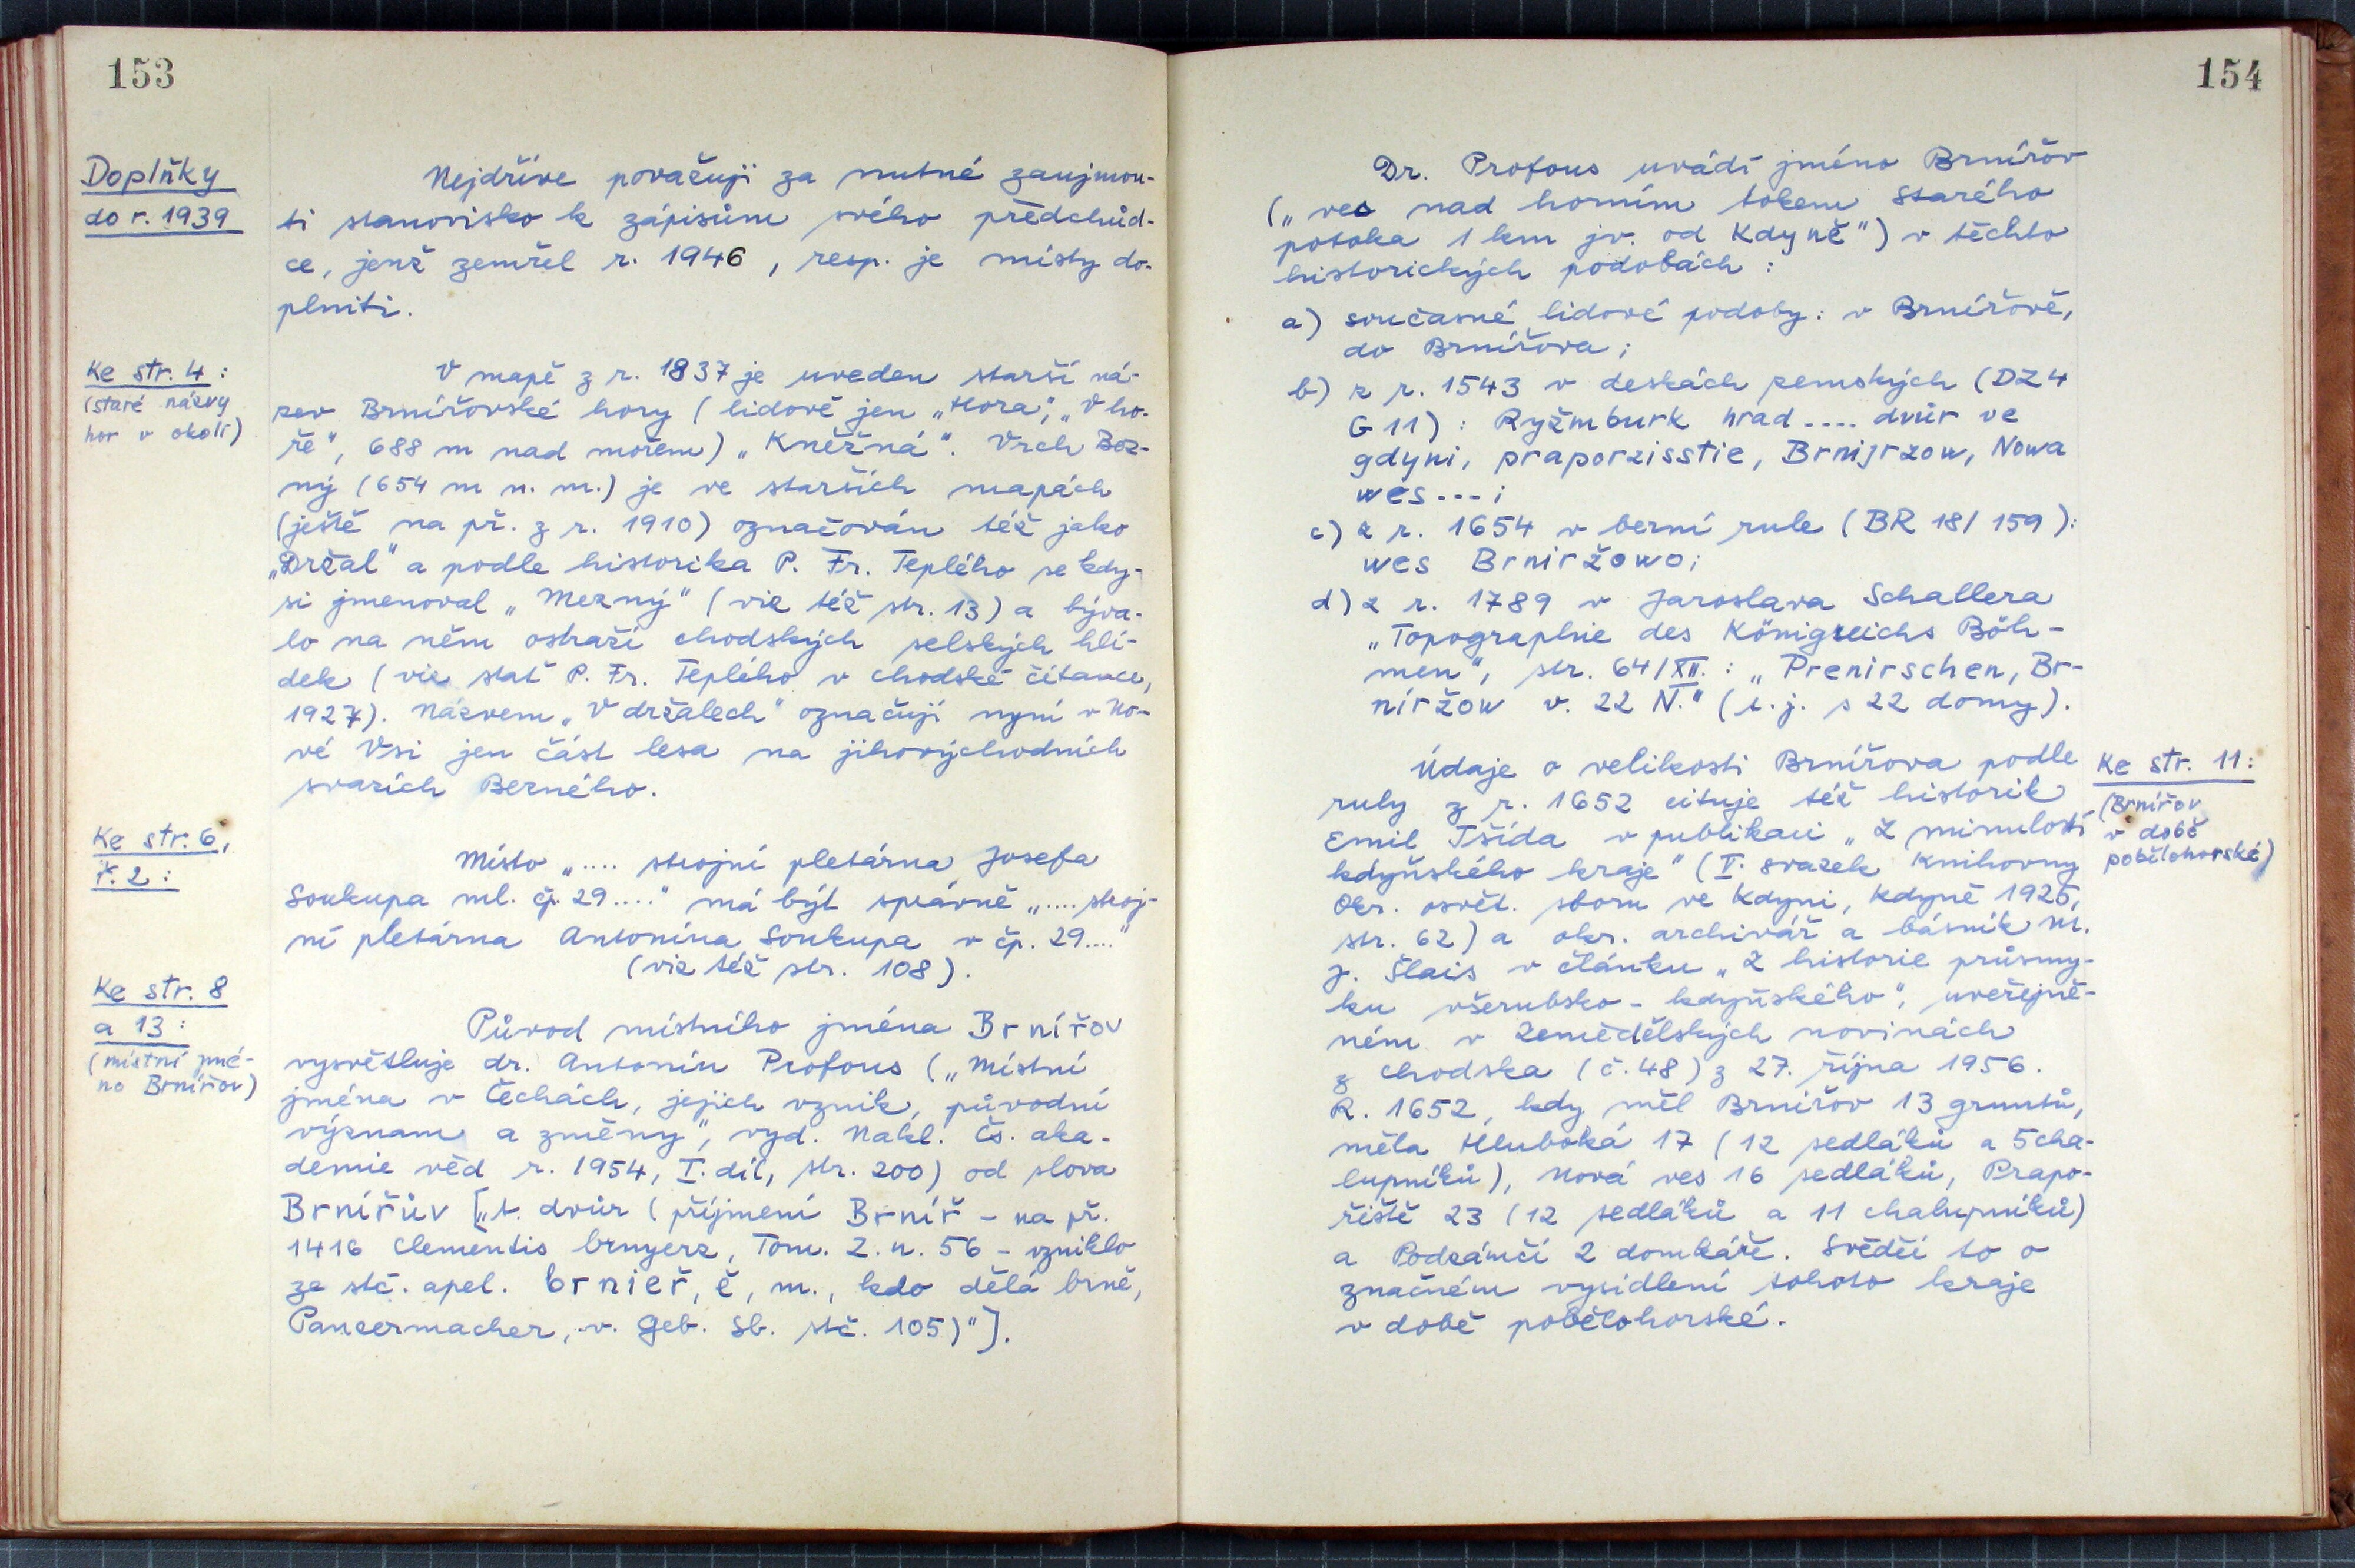 153
Doplňky
do r. 1939
Nejdříve považuji za nutné zaujmou-
ti stanovisko k zápisům svého předchůd-
ce, jenž zemřel r. 1946, resp. je místy do-
plniti.
Ke str. 4:
(staré názvy
hor v okolí)
V mapě z r. 1837 je uveden starší ná-
zev Brnířovské hory (lidově jen „Hora“, „V ho-
ře“, 688 m nad mořem) „Kněžná“. Vrch Bez-
ný (654 m n. m.) je ve starších mapách
(ještě na př. z r. 1910) označován též jako
„Držal“ a podle historika P. Fr. Teplého se kdy-
si jmenoval „Mezný“ (viz též str. 13) a býva-
lo na něm ostraží chodských selských hlí-
dek (viz stať P. Fr. Teplého v chodské čítance,
1927). Názvem „V držalech“ označují nyní v No-
vé Vsi jen část lesa na jihovýchodních
svazích Bezného.
Ke str. 6,
ř. 2:
Místo „.... strojní pletárna Josefa
Soukupa ml. čp. 29....“ má být správně „.... stroj-
ní pletárna Antonína Soukupa v čp. 29....“
(viz též str. 108).
Ke str. 8
a 13:
(místní jmé-
no Brnířov)
Původ místního jména Brnířov
vysvětluje dr. Antonín Profous („Místní
jména v Čechách, jejich vznik, původní
význam a změny“, vyd. Nakl. Čs. aka-
demie věd r. 1954, I. díl, str. 200) od slova
Brnířův [„t. dvůr (příjmení Brníř - na př.
1416 Clementis brnyerz, Tom. Z. n. 56 - vzniklo
ze stč. apel. brnieř, ě, m., kdo dělá brně,
Panzermacher, v. Geb. Sb. stč. 105)“].
154
Dr. Profous uvádí jméno Brnířov
(„ves nad horním tokem Starého
potoka 1 km jv. od Kdyně“) v těchto
historických podobách:
a) současné lidové podoby: v Brnířově,
do Brnířova;
b) z r. 1543 v deskách zemských (DZ4
G 11): Ryžmburk hrad .... dvůr ve
gdyni, praporzisstie, Brnijrzow, Nowa
wes ---;
c) z r. 1654 v berní rule (BR 18/159):
wes Brniržowo;
d) z r. 1789 v Jaroslava Schallera
„Topographie des Königreichs Böh-
men“, str. 64/XII.: „Prenirschen, Br-
niržow v. 22 N.“ (t. j. s 22 domy).
Údaje o velikosti Brnířova podle
ruly z r. 1652 cituje též historik
Emil Tšída v publikaci „Z minulosti
kdyňského kraje“ (V. svazek Knihovny
Okr. osvět. sboru ve Kdyni, Kdyně 1925,
str. 62) a okr. archivář a básník M.
J. Šlais v článku „Z historie průsmy-
ku všerubsko - kdyňského“, uveřejně-
ném v Zemědělských novinách
z Chodska (č. 48) z 27. října 1956.
R. 1652, kdy měl Brnířov 13 gruntů,
měla Hluboká 17 (12 sedláků a 5 cha-
lupníků), Nová ves 16 sedláků, Prapo-
řiště 23 (12 sedláků a 11 chalupníků)
a Podzámčí 2 domkáře. Svědčí to o
značném vysídlení tohoto kraje
v době pobělohorské.
Ke str. 11:
(Brnířov
v době
pobělohorské)